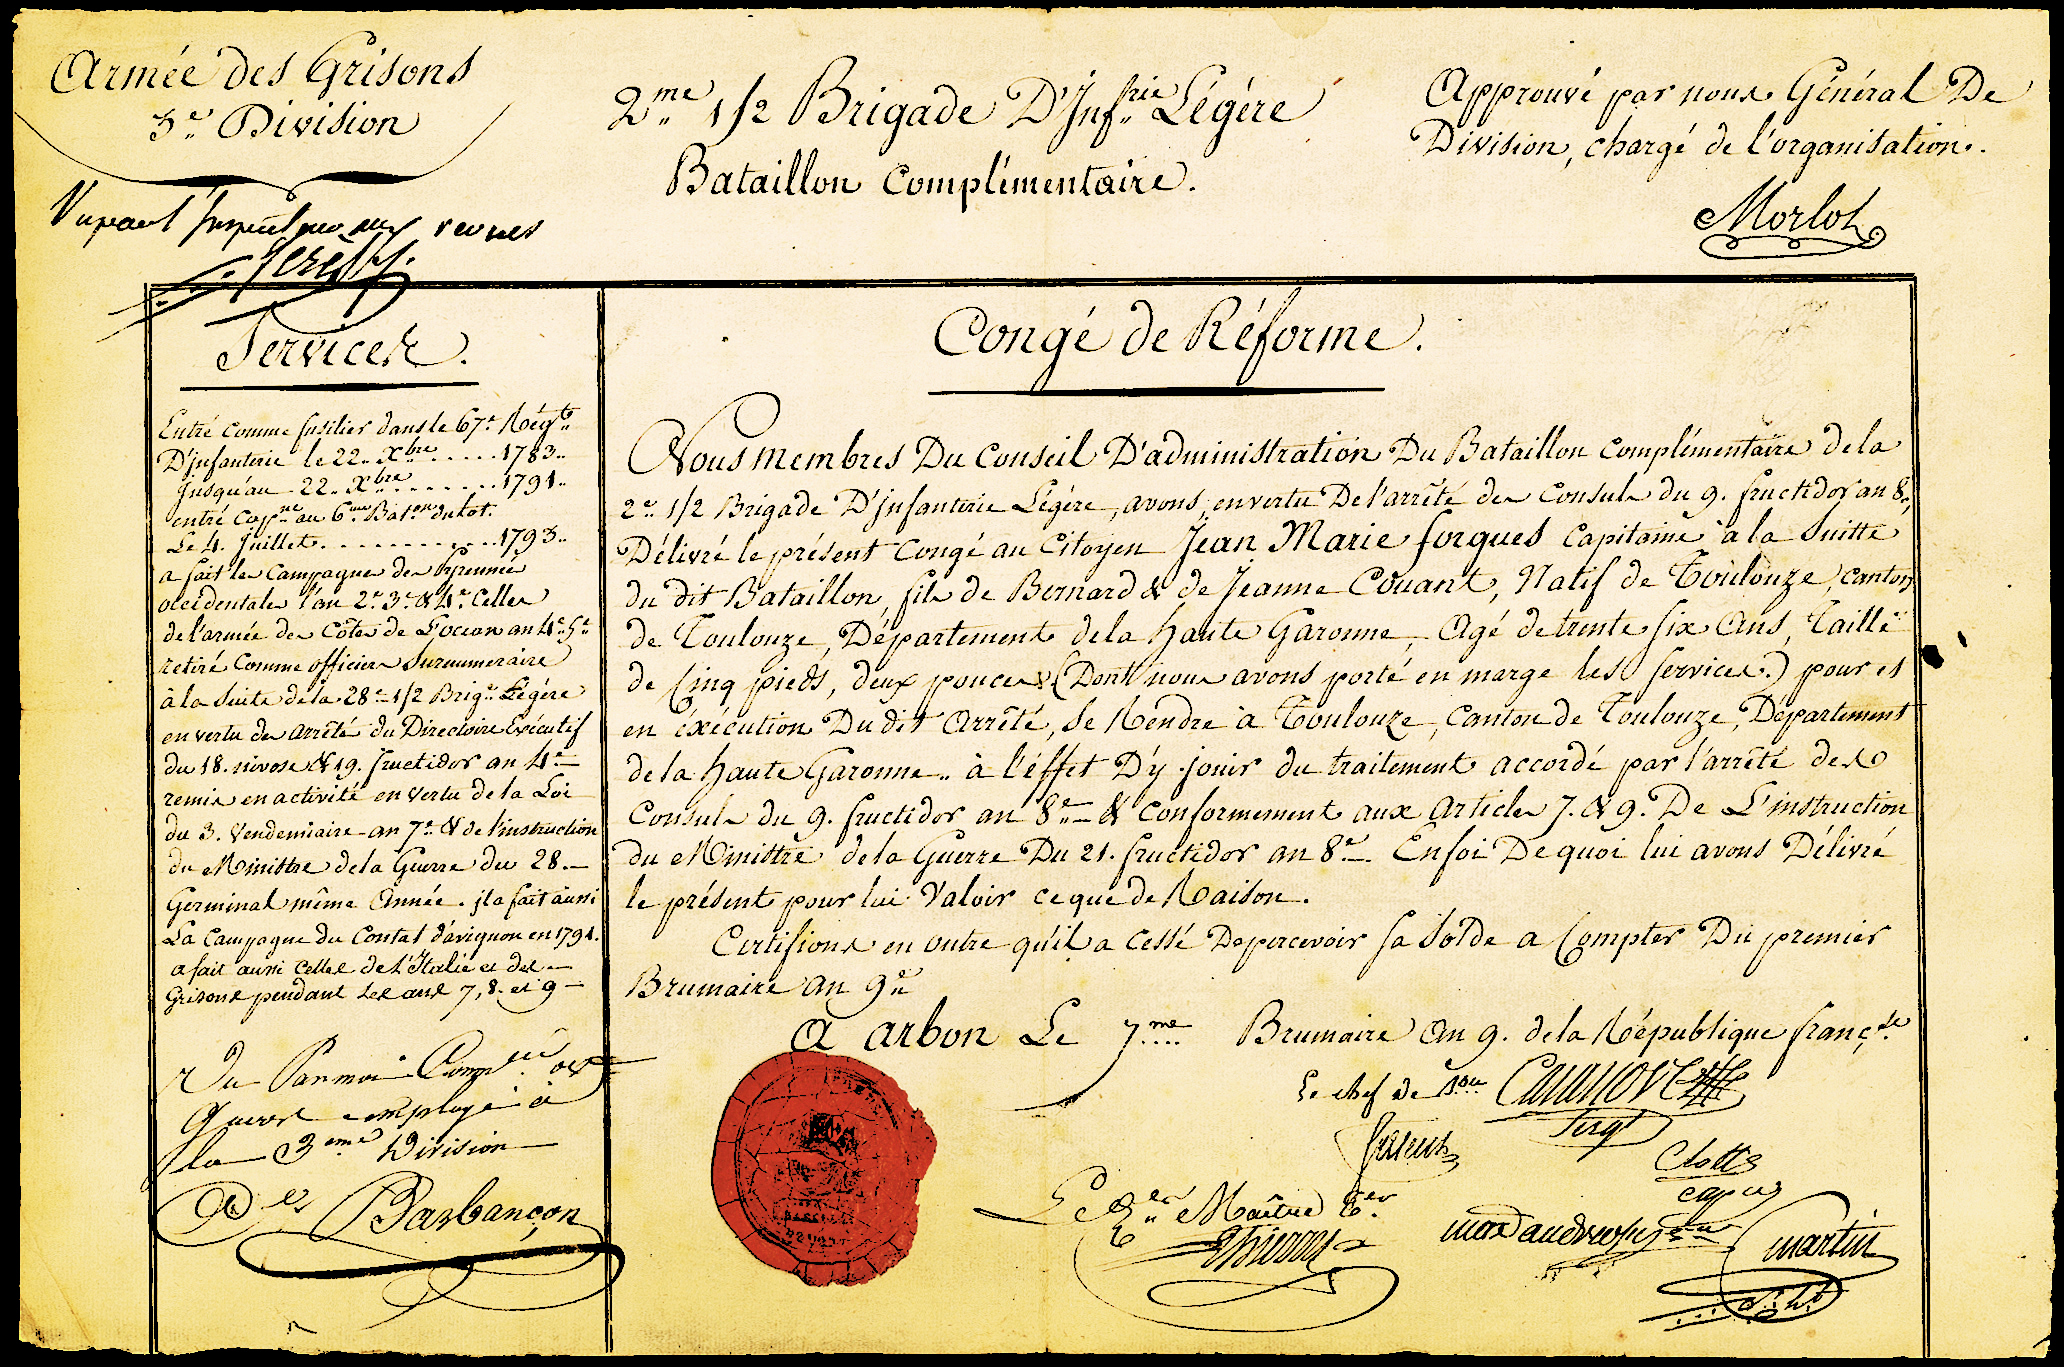 Armée des Grisons
3e Division
2me 1/2 Brigade D'Infrie Légére
Bataillon Complémentaire.
Approuvé par nous Général De
Division, chargé de l'organisation.
Morlot
Vu par l' aux revues
Services.
Entré comme fusilier dans le 67e Régt
D'jnfanterie le 22 Xbre ..... 1783
jusqu'au 22 Xbre ........ 1791
entré Capne au 6me Baton du Lot.
Le 4. Juillet ........... 1793
a fait les Campagnes des Pyrennées
occidentales l'an 2e 3e & 4e Celles
de l'armée des Côtes de L'ocean an 4e 5e
retiré Comme officier Surnumeraire
à la Suite de la 28e 1/2 Brige Légére
en vertu des arrêtés du Directoire Exécutif
du 18. nivose & 19. fructidor an 4e
remis en activité en vertu de la Loi
du 3. Vendemiaire an 7e & de l'instruction
du Ministre de la Guerre du 28.
Germinal même Année. jl a fait aussi
La Campagne du Contat d'avignon en 1791.
a fait aussi Celles de L'Italie et des
Grisons pendant Les ans 7, 8. et 9
Vu Par moi
Guerre employé à
la 3eme Division
Barbançon
Congé de Réforme.
Nous membres Du Conseil D'administration Du Bataillon Complémentaire de la
2e 1/2 Brigade D'jnfanterie Légére, avons, en vertu De l'arrêté des Consuls du 9. fructidor an 8e,
Délivré le présent Congé au Citoyen Jean Marie forgues Capitaine à la Suitte
du dit Bataillon, fils de Bernard & de Jeanne Couant, Natif de Toulouze, Canton
de Toulouze, Département de la haute Garonne, Agé de trente six Ans, Taille
de Cinq pieds, deux pouces (Dont nous avons porté en marge les services.) pour et
en éxécution Du dit Arrêté, Se Rendre à Toulouze, Canton de Toulouze, Département
de la haute Garonne à l'éffet D'y jouir du traitement accordé par l'arrêté des
Consuls du 9. fructidor an 8e & Conformement aux Articles 7. & 9. De L'instruction
du Ministre de la Guerre Du 21. fructidor an 8e. En foi De quoi lui avons Délivré
le présent pour lui Valoir ce que de Raison.
Certifions en outre qu'il a Cessé De percevoir sa Solde a Compter Du premier
Brumaire an 9e
A arbon Le 7me Brumaire An 9. de la République française
Le chef de Bon
Sergt
Clotte
cape
Le Qer Maître Ter
Thierry
martin